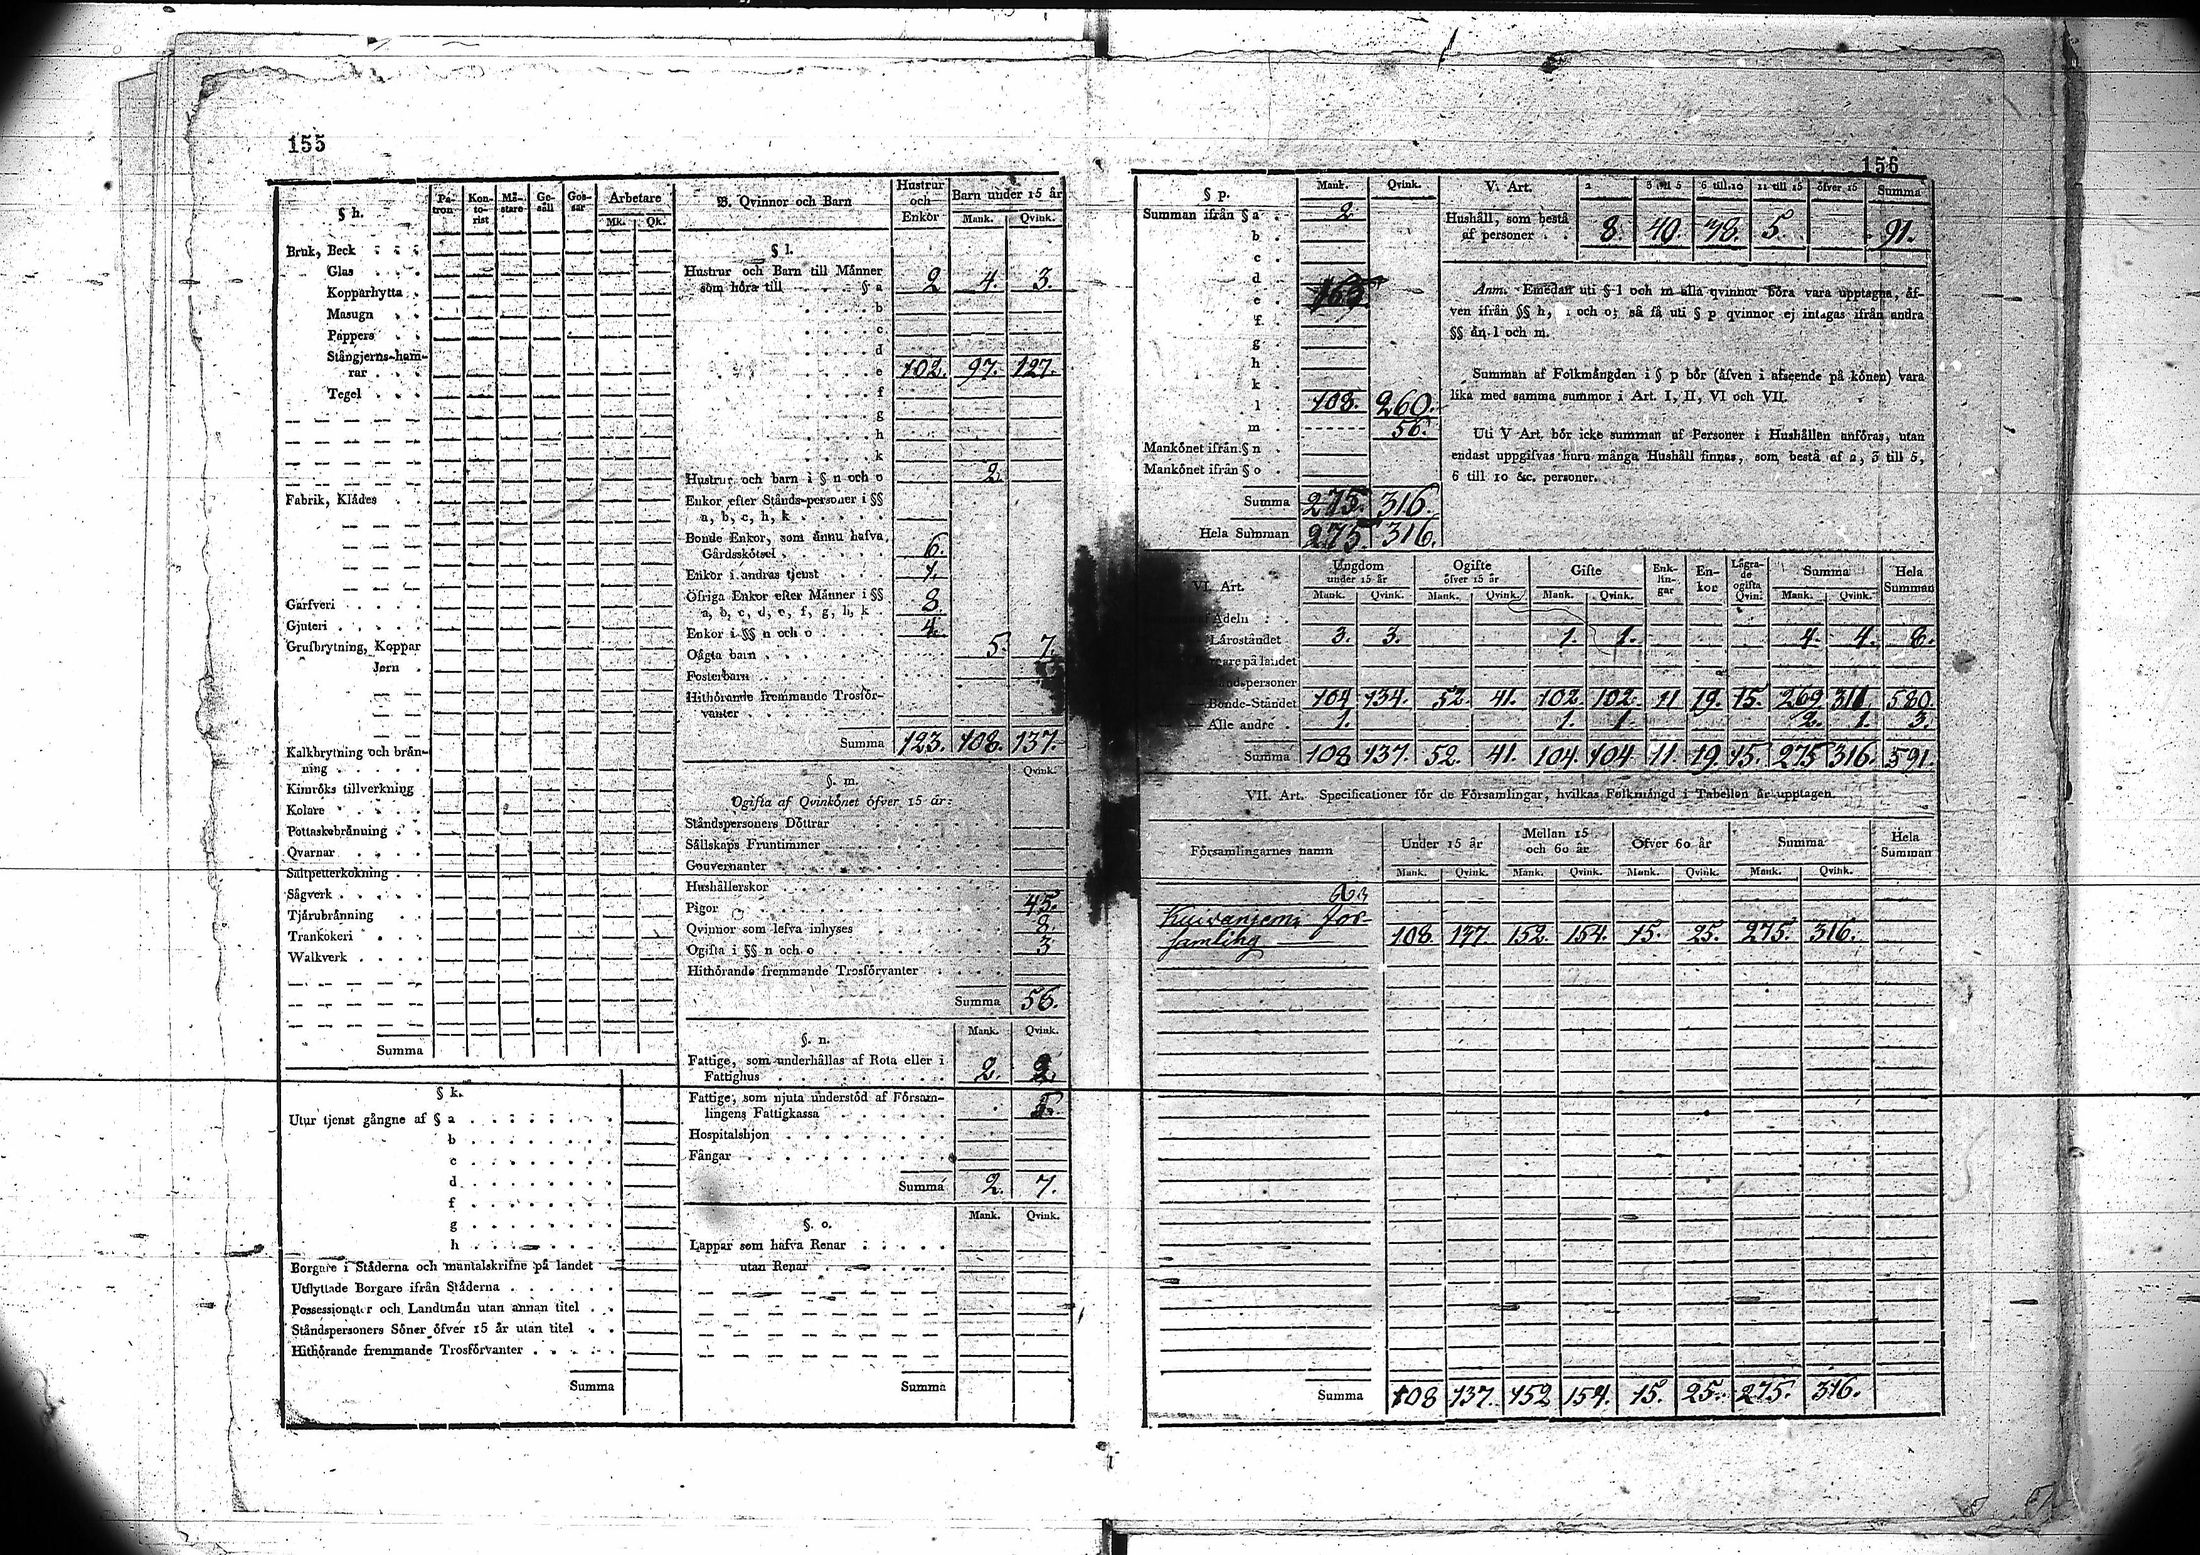 155
§ h.
Pa-
tron
Kon-
to-
rist
Mä-
stare
Ge-
säll
Gos-
sar
Arbetare
Mk. Qk.
Bruk, Beck . . .
Glas . . .
Kopparhytta .
Masugn . .
Pappers . .
Stångjerns-ham-
rar . . .
Tegel . . .
Fabrik, Klädes .
Garfveri . . . .
Gjuteri . . . .
Grufbrytning, Koppar
Jern .
Kalkbrytning och brän-
ning . . . .
Kimröks tillverkning
Kolare . . . .
Pottaskebränning . .
Qvarnar . . . .
Saltpetterkokning .
Sågverk . . . .
Tjärubränning . .
Trankokeri . . .
Walkverk . . . .
Summa
§ k.
Utur tjenst gångne af § a
b
c
d
f
g
h
Borgare i Städerna och mantalskrifne på landet
Utflyttade Borgare ifrån Städerna
Possessionater och Landtmän utan annan titel
Ståndspersoners Söner öfver 15 år utan titel
Hithörande fremmande Trosförvanter
Summa
B. Qvinnor och Barn
Hustrur
och
Enkor
Barn under 15 år
Mank. Qvink.
§ l.
Hustrur och Barn till Männer
som höra till . . . § a 2 4. 3.
b
c
d
e 102. 97. 127.
f
g
h
k
Hustrur och barn i § n och o 2.
Enkor efter Stånds-personer i §§
a, b, c, h, k
Bonde Enkor, som ännu hafva
Gårdsskötsel 6.
Enkor i andras tjenst 1.
Öfriga Enkor efter Männer i §§
a, b, c, d, e, f, g, h, k 8.
Enkor i §§ n och o 4.
Oägta barn 5. 7.
Fosterbarn
Hithörande fremmande Trosför-
vanter
Summa 123. 108. 137.
§. m. Qvink.
Ogifta af Qvinkönet öfver 15 år:
Ståndspersoners Döttrar
Sällskaps Fruntimmer
Gouvernanter
Hushållerskor
Pigor 45.
Qvinnor som lefva inhyses 8.
Ogifta i §§ n och o 3
Hithörande fremmande Trosförvanter
Summa 56.
§. n. Mank. Qvink.
Fattige, som underhållas af Rota eller i
Fattighus 2. 2.
Fattige, som njuta understöd af Försam-
lingens Fattigkassa 5.
Hospitalshjon
Fångar
Summa 2. 7.
§. o. Mank. Qvink.
Lappar som hafva Renar
utan Renar
Summa
156
§ p. Mank. Qvink.
Summan ifrån § a 2
b
c
d
e 163
f
g
h
k
l 108. 260.
m 56.
Mankönet ifrån § n
Mankönet ifrån § o
Summa 275. 316.
Hela Summan 275. 316.
V. Art. 2 3 till 5 6 till 10 11 till 15 öfver 15 Summa
Hushåll, som bestå
af personer . . 8. 40. 38. 5. 91.
Anm. Emedan uti § l och m alla qvinnor böra vara upptagna, äf-
ven ifrån §§ h, i och o; så få uti § p qvinnor ej intagas ifrån andra
§§ än l och m.
Summan af Folkmängden i § p bör (äfven i afseende på könen) vara
lika med samma summor i Art. I, II, VI och VII.
Uti V Art. bör icke summan af Personer i Hushållen anföras, utan
endast uppgifvas huru många Hushåll finnas, som bestå af 2, 3 till 5,
6 till 10 &c. personer.
VI. Art.
Ungdom
under 15 år
Ogifte
öfver 15 år
Gifte
Enk-
lin-
gar
En-
kor
Lägra-
de
ogifta
Qvin.
Summa
Hela
Summan
Mank. Qvink. Mank. Qvink. Mank. Qvink. Mank. Qvink.
Adeln
Läroståndet 3. 3. 1. 1. 4. 4. 8.
på landet
personer
Bonde-Ståndet 104 134. 52. 41. 102. 102. 11 19. 15. 269 311 580.
Alle andre 1. 1. 1. 2. 1. 3.
Summa 108 137. 52. 41. 104. 104. 11. 19. 15. 275 316. 591.
VII. Art. Specificationer för de Församlingar, hvilkas Folkmängd i Tabellen är upptagen
Församlingarnes namn
Under 15 år
Mellan 15
och 60 år
Öfver 60 år
Summa
Hela
Summan
Mank. Qvink. Mank. Qvink. Mank. Qvink. Mank. Qvink.
Kuivaniemi för-
samling 108. 137 152. 154. 15. 25. 275. 316.
Summa 108 137. 152 154. 15. 25. 275. 316.